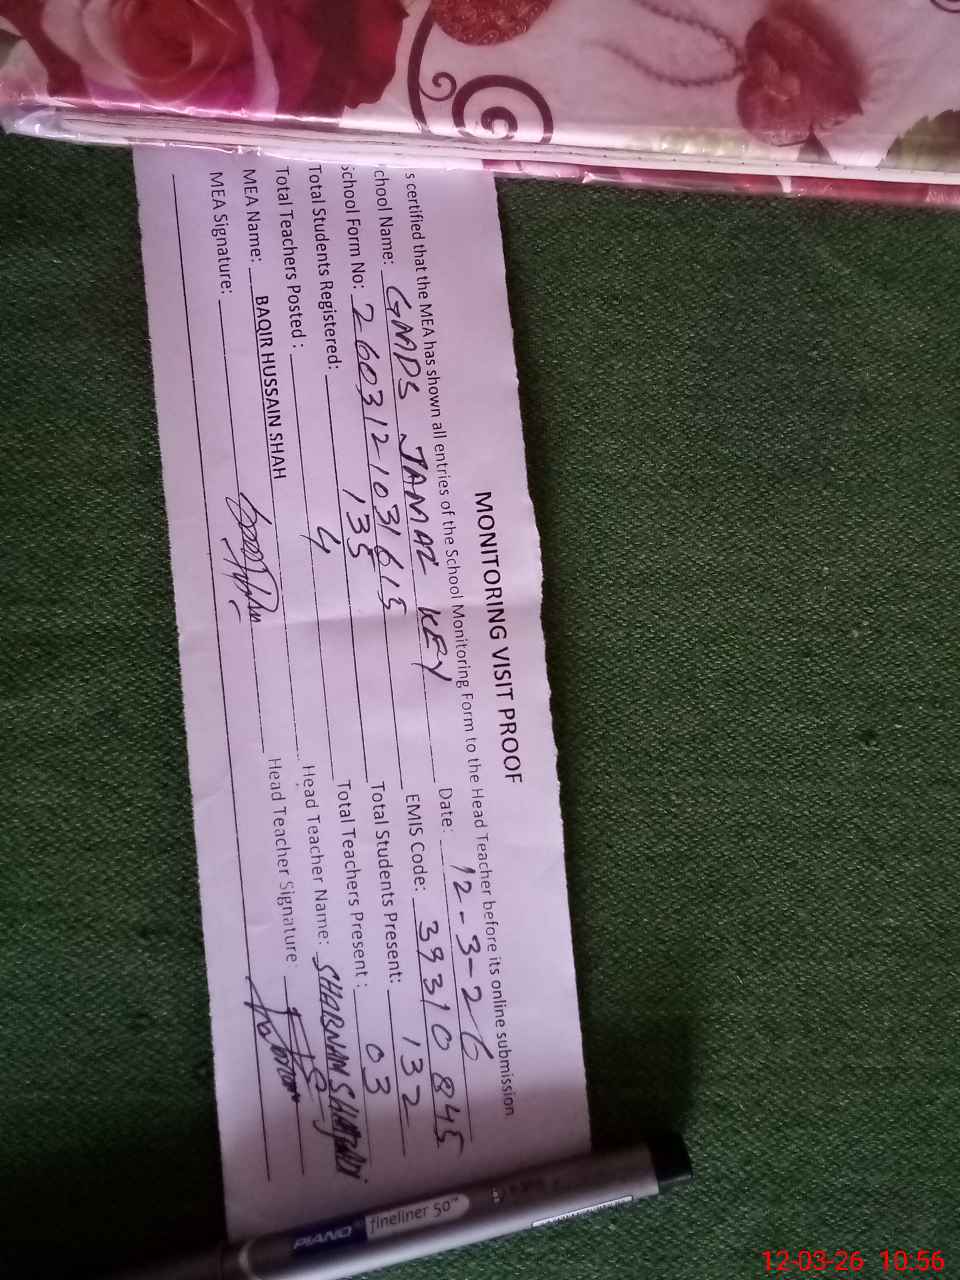 MONITORING VISIT PROOF
s certified that the MEA has shown all entries of the School Monitoring Form to the Head Teacher before its online submission
chool Name: GMPS JAMAZ KEY Date: 12-3-26
School Form No: 2603121031615 EMIS Code: 39310845
Total Students Registered: 135 Total Students Present: 132
Total Teachers Posted : 4 Total Teachers Present : 03
MEA Name: BAQIR HUSSAIN SHAH Head Teacher Name: SHABNAM SHAHZADI
MEA Signature: Head Teacher Signature
PIANO® fineliner 50™
12-03-26 10:56